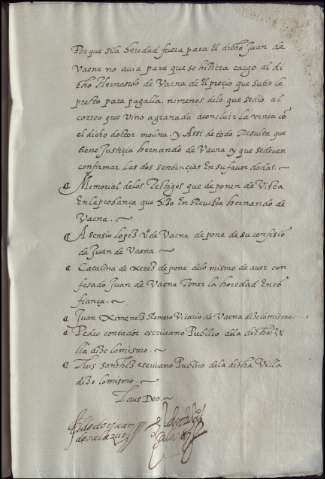 Porque si la heredad fuera para El dicho Juan de
Vaena no avia para que se hiziera cargo al di
cho Hernando de Vaena del precio que sobre le
presto para pagalla. ni menos de lo que se dio al
correo que vino a granada a concluir la venta cō
el dicho doctor molina. y Assi de todo Resulta que
tiene Justicia hernando de Vaena y que se deven
confirmar las dos sentencias En su favor dadas.
Memorial de los Testigos que deponen de Vista
En la provança que hizo En Revista hernando de
Vaena.
Asensio lopez de Vaena depone de su confesiō
de Juan de Vaena.
Catalina de xerez depone de lo mismo de aver con
fesado Juan de Vaena Tener la heredad En cō
fiança.
Juan Ximenez Romero Vicario de Vaena dize lo mismo.
Pedro contador escrivano Publico de la dicha Vi
lla dize lo mismo.
Luis sanchez escrivano Publico de la dicha Villa
dize lo mismo.
Laus Deo.